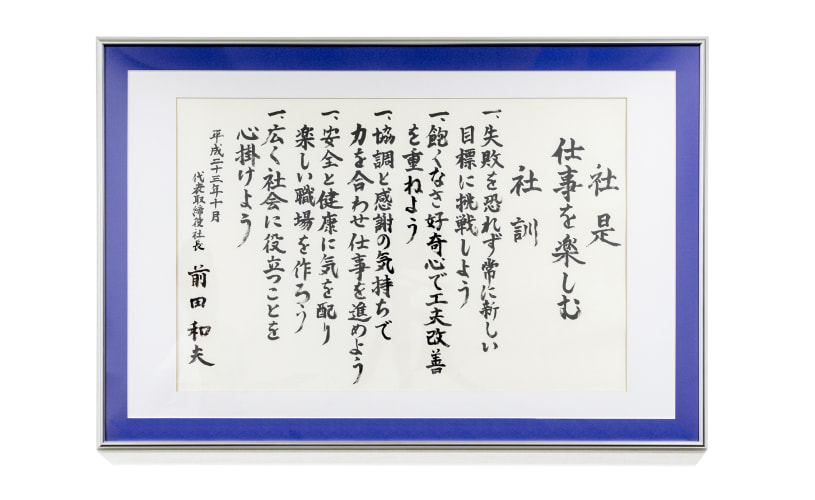 社是
仕事を楽しむ
社訓
一、失敗を恐れず常に新しい
目標に挑戦しよう
一、飽くなき好奇心で工夫改善
を重ねよう
一、協調と感謝の気持ちで
力を合わせ仕事を進めよう
一、安全と健康に気を配り
楽しい職場を作ろう
一、広く社会に役立つことを
心掛けよう
平成二十三年十月
代表取締役社長 前田和夫